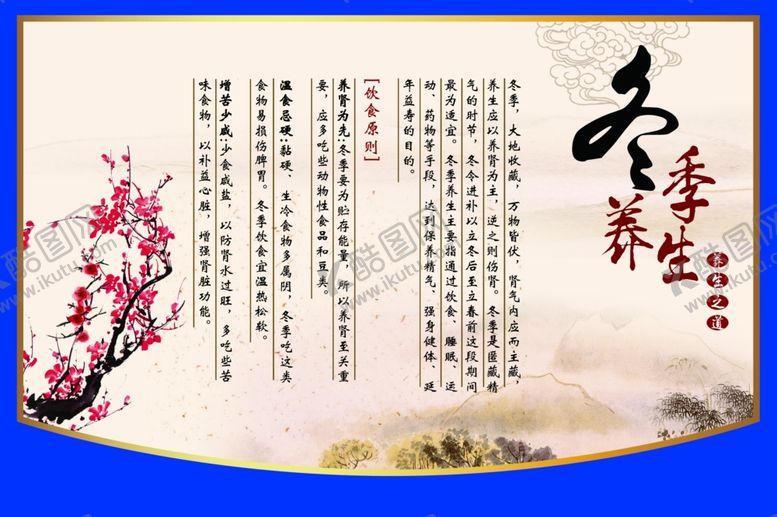 冬季养生
养生之道
冬季，大地收藏，万物皆伏，肾气内应而主藏，
养生应以养肾为主，逆之则伤肾。冬季是匿藏精
气的时节，冬令进补以立冬后至立春前这段期间
最为适宜。冬季养生主要指通过饮食、睡眠、运
动、药物等手段，达到保养精气、强身健体、延
年益寿的目的。
[饮食原则]
养肾为先:冬季要为贮存能量，所以养肾至关重
要，应多吃些动物性食品和豆类。
温食忌硬:黏硬、生冷食物多属阴，冬季吃这类
食物易损伤脾胃。冬季饮食宜温热松软。
增苦少咸:少食咸盐，以防肾水过旺，多吃些苦
味食物，以补益心脏，增强肾脏功能。
酷图网
www.ikutu.com